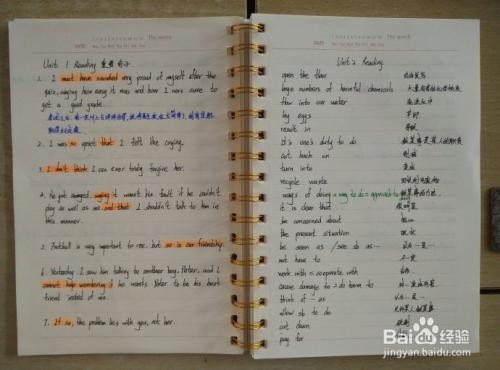 Unit 1 Reading 重点句子
1. I must have sounded very proud of myself after the
quiz, saying how easy it was and how I was sure to
get a good grade.
2. I was so upset that I felt like crying.
3. I don't think I can ever truly forgive her.
4. He got angry, saying it wasn't his fault if he couldn't
play as well as me and that I shouldn't talk to him in
this manner.
5. Football is very important to me, but so is our friendship.
6. Yesterday, I saw him talking to another boy, Peter, and I
cannot help wondering if he wants Peter to be his best
friend instead of me.
7. If so, the problem lies with you, not her.
Unit 2 Reading
open the floor
large numbers of harmful chemicals
flow into our water
lay eggs
result in 导致
It's one's duty to do
cut back on
turn into
recycle waste
ways of doing = way to do = approach to
it is clear that
be concerned about 担心
the present situation 现状
be seen as / see sb as
not have to 不必
work with = cooperate with 合作
cause damage to = do harm to
think of … as
allow sb to do
cut down
pay for
Baidu 经验
jingyan.baidu.com